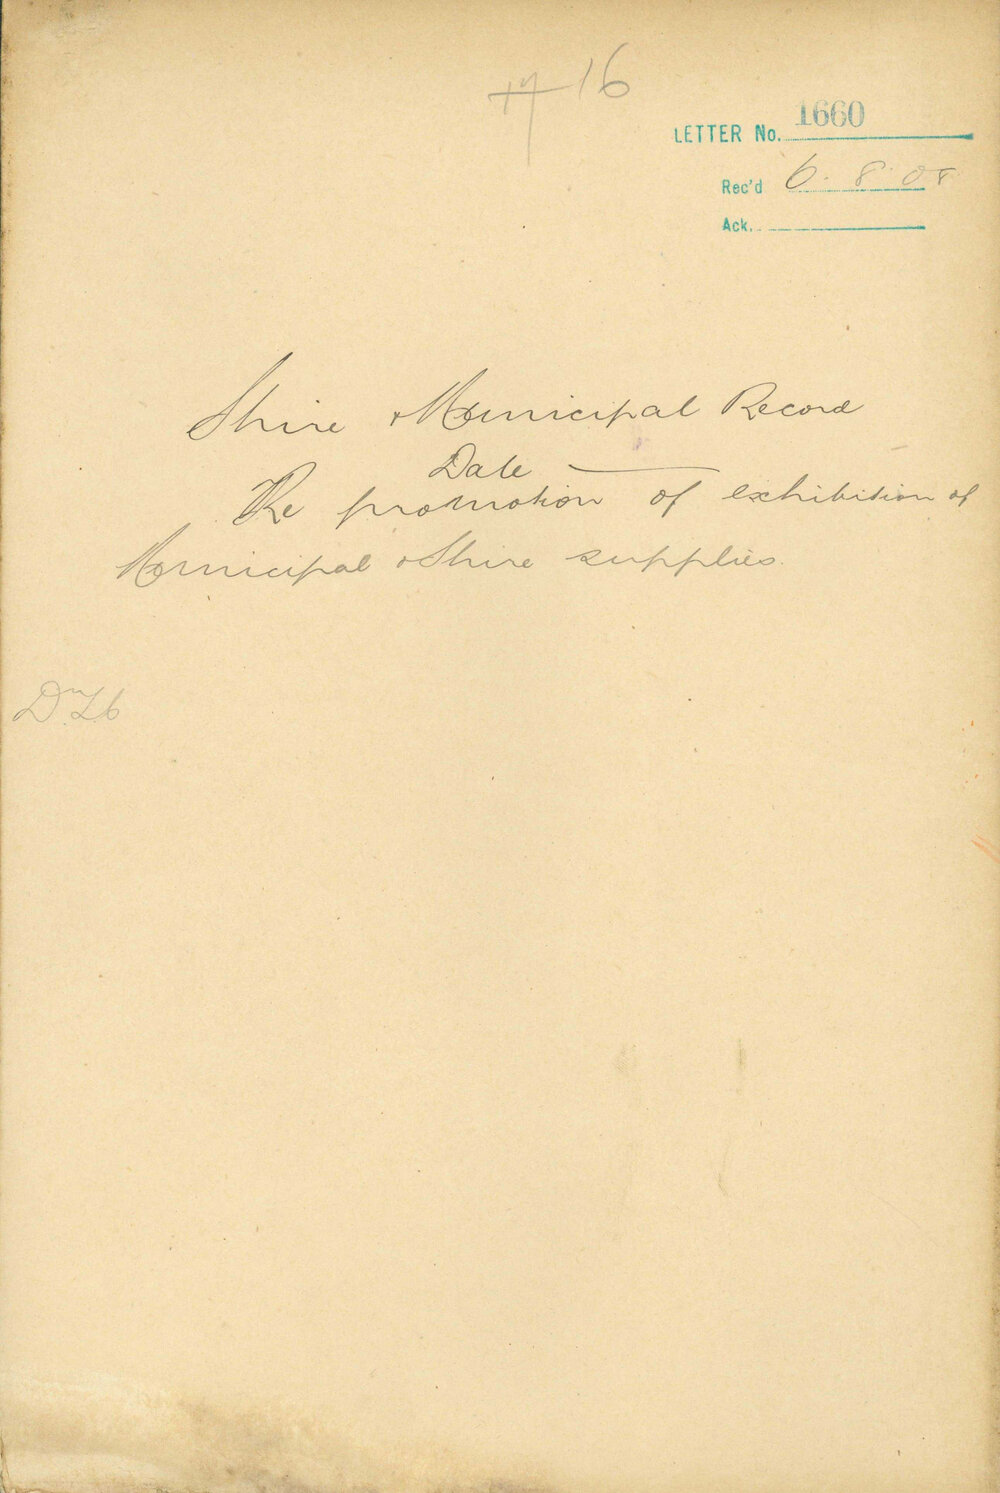 16
LETTER No. 1660
Rec'd 6.8.08
Ack.
Shire & Municipal Record
Date
Re promotion of exhibition of
Municipal & Shire supplies.